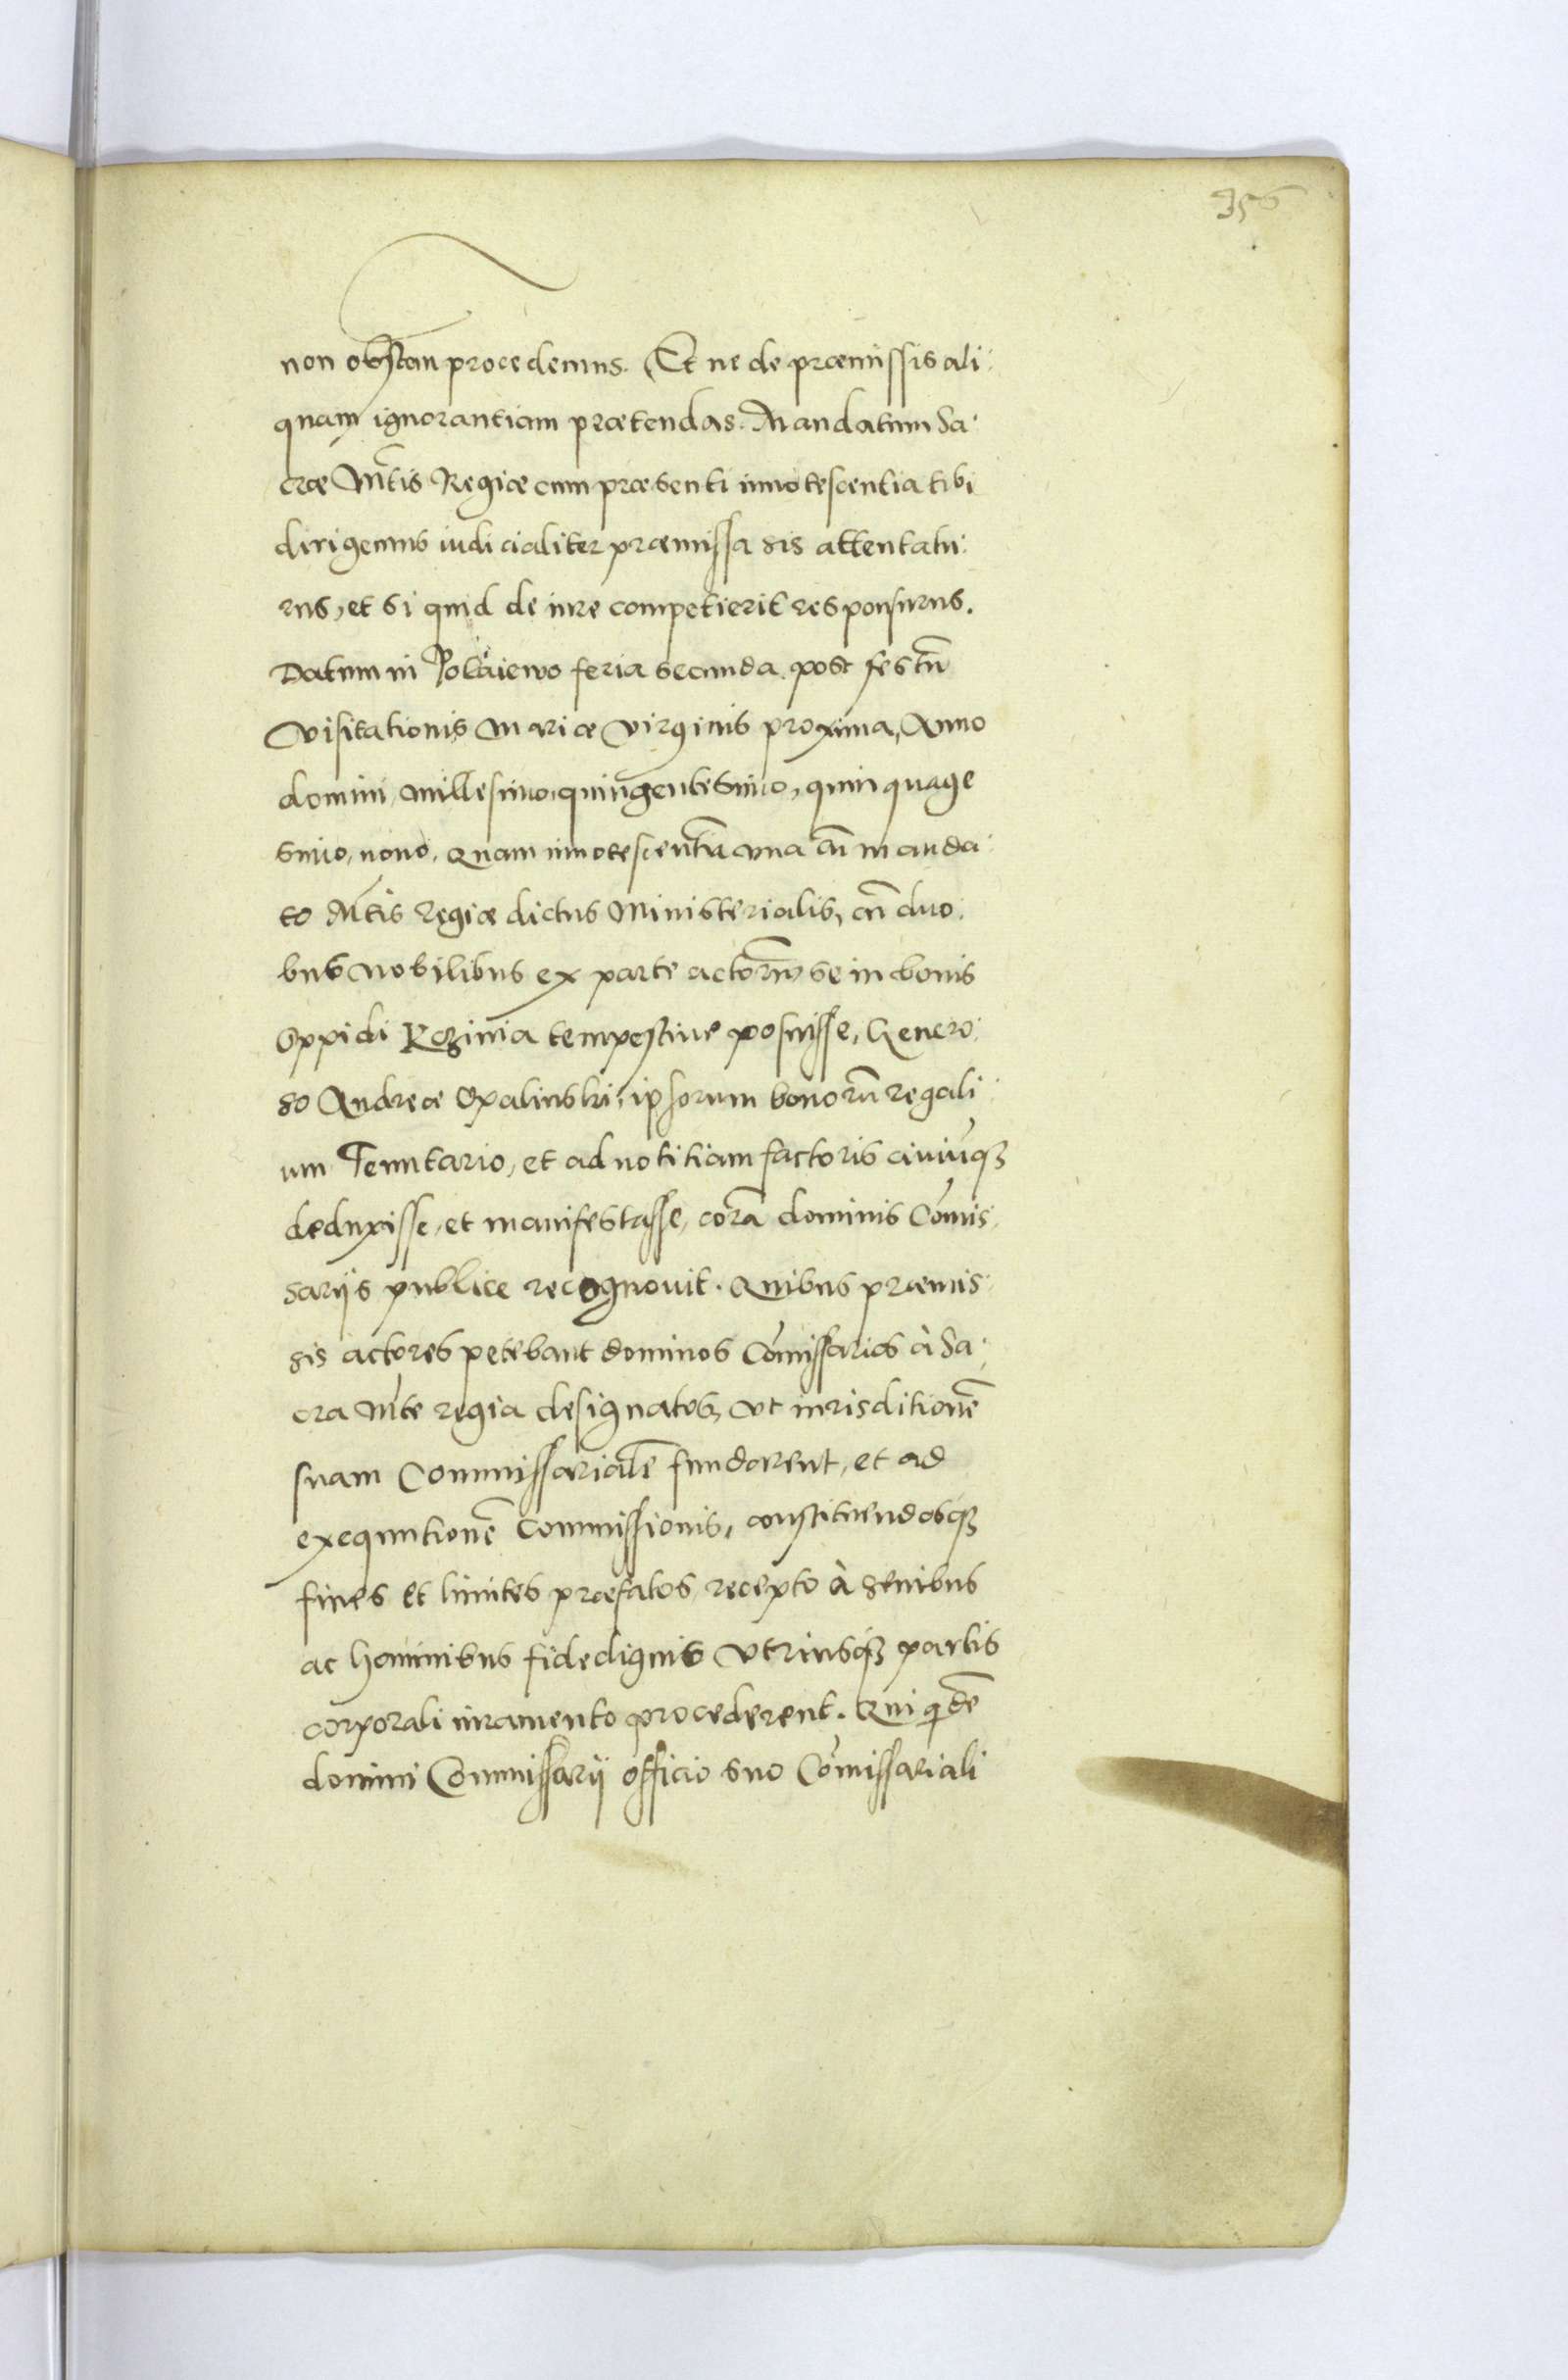 356
non obstan procedemus. Et ne de præmissis ali:
quam ignorantiam prætendas. Mandatum Sa:
cræ Mtis Regiæ cum præsenti innotescentia tibi
dirigemus iudicialiter præmissa sis attentatu:
rus, et si quid de iure competierit responsurus.
Datum in Polaiewo feria secunda post festũ
Visitationis Mariæ Virginis proxima, Anno
domini, millesimo, quingentesimo, quinquage
simo, nono. Quam innotescentiã una cũ manda:
to Mtis Regiæ dictus Ministerialis, cũ duo:
bus nobilibus ex parte actorũ se in bonis
Oppidi Rogzinia tempestive posuisse, Genero:
so Andreæ Opalinski, ipsorum bonorũ regali:
um Tenutario, et ad notitiam factoris civiũq3
deduxisse, et manifestasse, corã dominis Cõmis:
sarijs publice recognovit. Quibus præmis:
sis actores petebant dominos Cõmissarios à Sa:
cra Mte regia designatos, ut iurisditionẽ
suam Commissarialẽ fundarent, et ad
exequutionẽ Commissionis, constituendosq3
fines et limites præfatos, recepto à senibus
ac hominibus fidedignis utriusq3 partis
corporali iuramento procederent. Qui qdẽ
domini Commissarij officio suo Cõmissariali